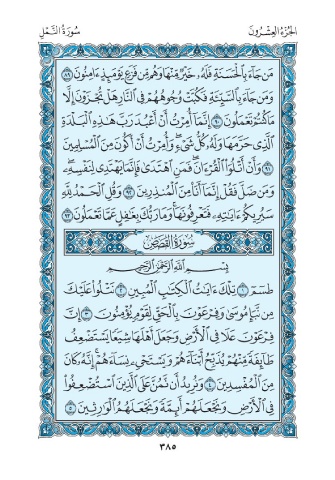 الجزء العشرون سورة النمل
من جاء بالحسنة فله خير منها وهم من فزع يومئذ ءامنون ٨٩
ومن جاء بالسيئة فكبت وجوههم في النار هل تجزون إلا
ما كنتم تعملون ٩٠ إنما أمرت أن أعبد رب هذه البلدة
الذي حرمها وله كل شيء وأمرت أن أكون من المسلمين
٩١ وأن أتلوا القرءان فمن اهتدى فإنما يهتدي لنفسه
ومن ضل فقل إنما أنا من المنذرين ٩٢ وقل الحمد لله
سيريكم ءايته فتعرفونها وما ربك بغفل عما تعملون ٩٣
سورة القصص
بسم الله الرحمن الرحيم
طسم ١ تلك ءايت الكتب المبين ٢ نتلوا عليك
من نبإ موسى وفرعون بالحق لقوم يؤمنون ٣ إن
فرعون علا في الأرض وجعل أهلها شيعا يستضعف
طائفة منهم يذبح أبناءهم ويستحي نساءهم إنه كان
من المفسدين ٤ ونريد أن نمن على الذين استضعفوا
في الأرض ونجعلهم أئمة ونجعلهم الوارثين ٥
٣٨٥